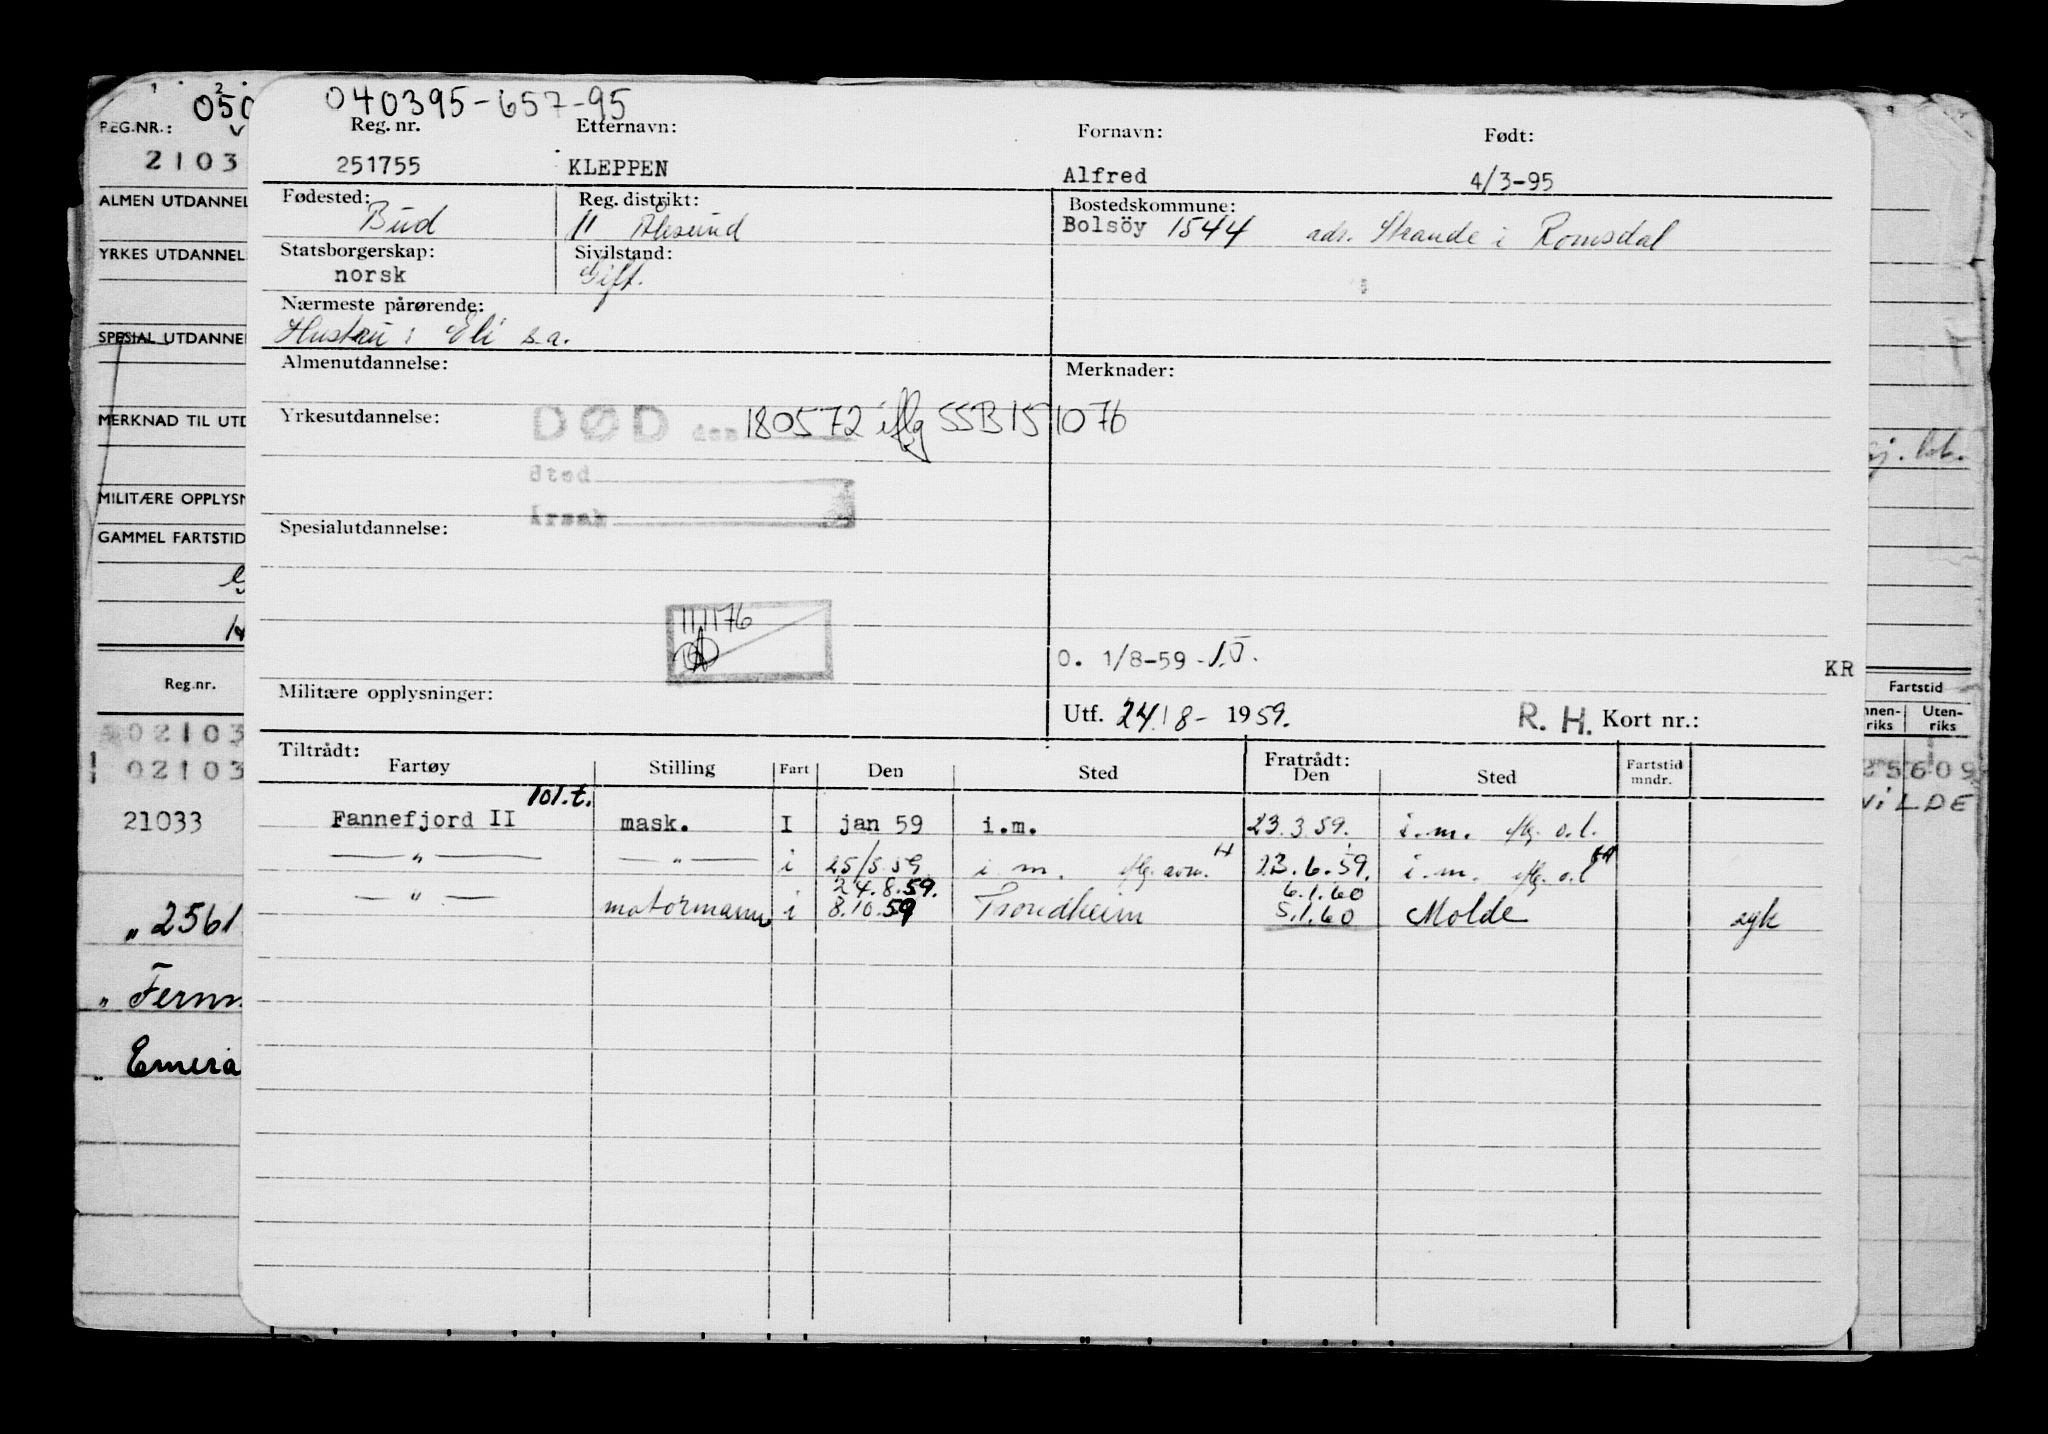 040395-657-95
Reg. nr. Etternavn: Fornavn: Født:
251755 KLEPPEN Alfred 4/3-95
Fødested: Reg. distrikt: Bostedskommune:
Bud 11 Ålesund Bolsöy 1544 adr. Strande i Romsdal
Statsborgerskap: Sivilstand:
norsk Gift.
Nærmeste pårørende:
Hustru: Eli s.a.
Almenutdannelse: Merknader:
Yrkesutdannelse: DØD den 180572 iflg SSB 151076
Sted
Årsak
Spesialutdannelse:
111176
O. 1/8-59
KR
Militære opplysninger:
Utf. 24/8- 1959. R. H. Kort nr.:
Tiltrådt: Fratrådt:
Fartøy Stilling Fart Den Sted Den Sted Fartstid mndr.
101.t.
Fannefjord II mask. I jan 59 i.m. 23.3.59. i.m. iflg. o.l.
—"— —"— i 25/5.59. i m. 23.6.59. i.m. iflg. o.l
24.8.59. 6.1.60
—"— motormann i 8.10.59 Trondheim 5.1.60 Molde syk
050
REG.NR.:
2103
ALMEN UTDANNEL
YRKES UTDANNEL
SPESIAL UTDANNE
MERKNAD TIL UTD
MILITÆRE OPPLYSN
GAMMEL FARTSTID
Reg.nr.
02103
02103
21033
" 2561
" Fernm
" Emera
Fartstid
nnen- riks Uten- riks
25609
VILDE